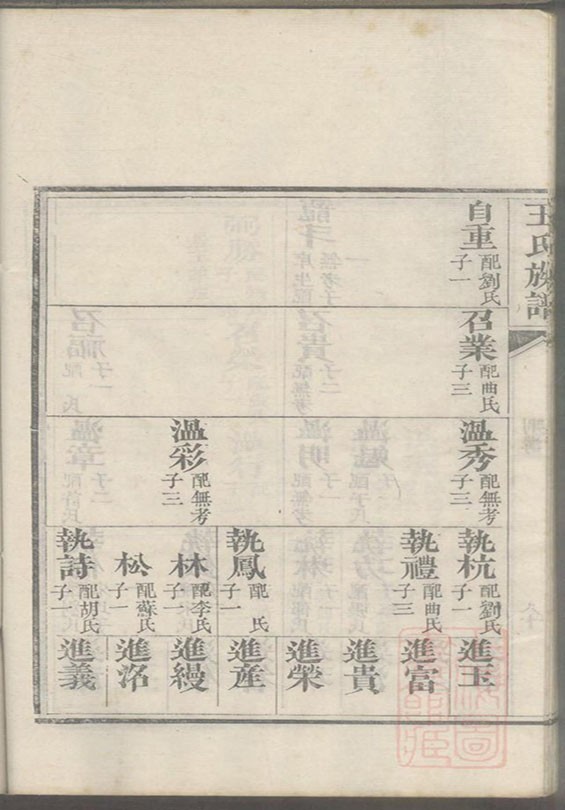 王氏族譜
自重 配劉氏 子一
召業 配曲氏 子三
溫秀 配無考 子三
溫彩 配無考 子三
執杭 配劉氏 子一
執禮 配曲氏 子三
執鳳 配 氏 子一
林 配李氏 子一
松 配蘇氏 子一
執詩 配胡氏 子一
進玉
進富
進貴
進榮
進產
進縵
進洺
進義